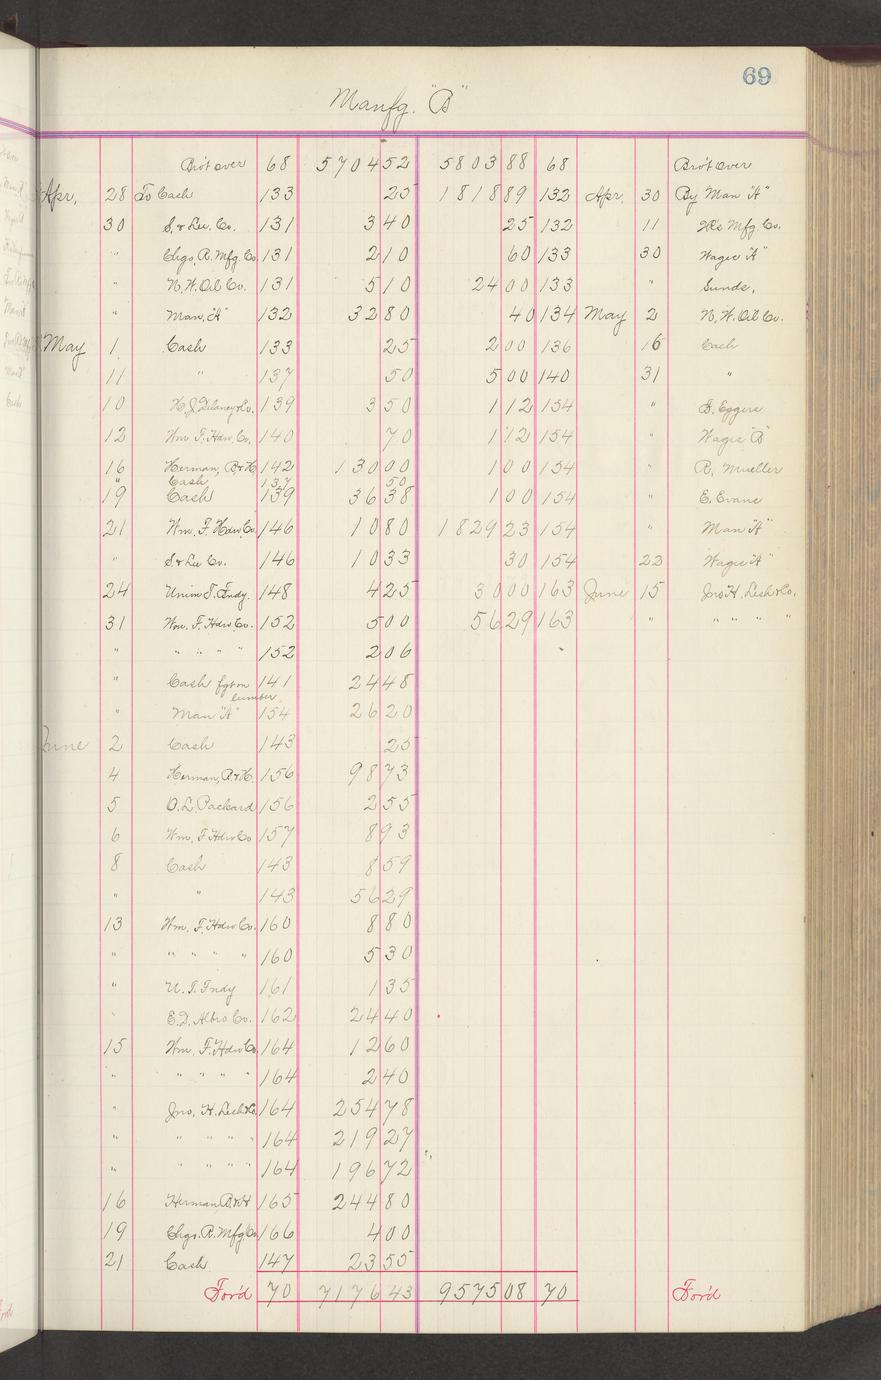 69
Manfg. "B"
Bro't over 68 5704 52 5803 88 68 Bro't over
Apr. 28 To Cash 133 25 1818 89 132 Apr. 30 By Man "A"
30 S. & Lu. Co. 131 3 40 25 132 11 Mfg. Co.
" Chgo. R. Mfg. Co. 131 2 10 60 133 30 Wages "A"
" N. W. Oil Co. 131 5 10 24 00 133 " Sunds.
" Man. "A" 132 32 80 40 134 May 2 N. W. Oil Co.
May 1 Cash 133 25 2 00 136 16 Cash
11 " 137 50 5 00 140 31 "
10 H. J. Delaney & Co. 139 3 50 1 12 154 " F. Eggers
12 Wm F. Hdw. Co. 140 70 1 12 154 " Wages "B"
16 Herman, B. & H. 142 130 00 1 00 154 " R. Mueller
" Cash 137 50
19 Cash 139 36 38 1 00 154 " E. Evans
21 Wm. F. Hdw. Co. 146 10 80 1829 23 154 " Man "A"
" S. & Lu Co. 146 10 33 30 154 22 Wages "A"
24 Union F. Fndy. 148 4 25 30 00 163 June 15 Jno. H. Lesh & Co.
31 Wm. F. Hdw. Co. 152 5 00 56 29 163 " " " " "
" " " " " 152 2 06
" Cash fgt on 141 24 48
lumber
" Man "A" 154 26 20
June 2 Cash 143 25
4 Herman, B. & H. 156 98 73
5 O. L. Packard 156 2 55
6 Wm. F. Hdw Co 157 8 93
8 Cash 143 8 59
" " 143 56 29
13 Wm. F. Hdw Co. 160 8 80
" " " " " 160 5 30
" U. F. Fndy 161 1 35
" E. D. Albro Co. 162 24 40
15 Wm. F. Hdw Co. 164 12 60
" " " " " 164 2 40
" Jno. H. Lesh & Co. 164 254 78
" " " " " 164 219 27
" " " " " 164 196 72
16 Herman, B. & H 165 244 80
19 Chgo. R. Mfg. Co. 166 4 00
21 Cash 147 23 55
For'd 70 7176 43 9575 08 70 For'd